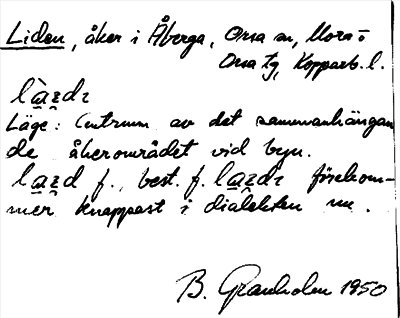 Liden, åker i Åberga, Orsa sn, Mora o
Orsa tg, Kopparb. l.
Läge: Centrum av det sammanhängan
de åkerområdet vid byn.
f., best. f. förekom-
mer knappast i dialekten nu.
B. Granholm 1950